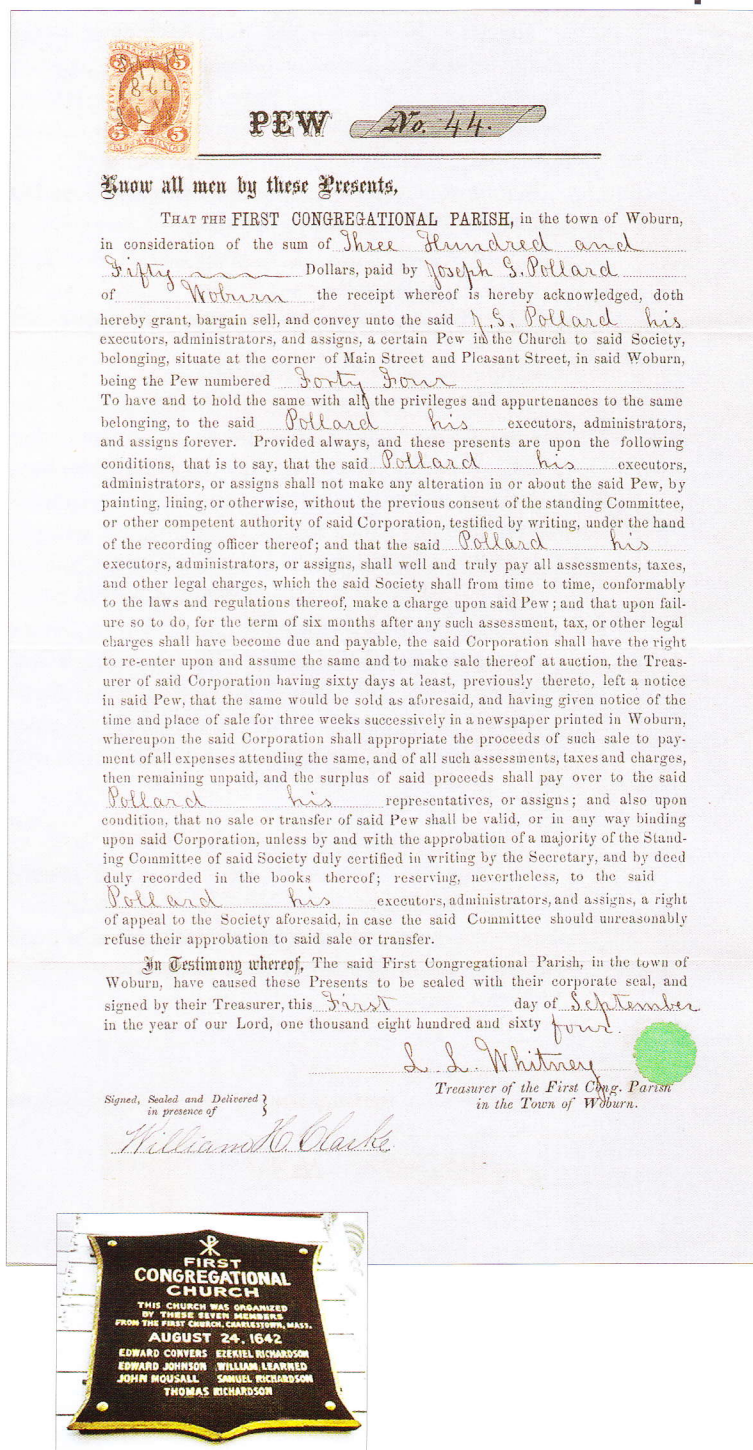 5 5
Sept 1st
1864
FIVE CENTS
5 5
PEW No. 44.
Know all men by these Presents,
THAT THE FIRST CONGREGATIONAL PARISH, in the town of Woburn,
in consideration of the sum of Three Hundred and
Fifty Dollars, paid by Joseph G. Pollard
of Woburn the receipt whereof is hereby acknowledged, doth
hereby grant, bargain sell, and convey unto the said J. G. Pollard his
executors, administrators, and assigns, a certain Pew in the Church to said Society,
belonging, situate at the corner of Main Street and Pleasant Street, in said Woburn,
being the Pew numbered Forty Four
To have and to hold the same with all the privileges and appurtenances to the same
belonging, to the said Pollard his executors, administrators,
and assigns forever. Provided always, and these presents are upon the following
conditions, that is to say, that the said Pollard his executors,
administrators, or assigns shall not make any alteration in or about the said Pew, by
painting, lining, or otherwise, without the previous consent of the standing Committee,
or other competent authority of said Corporation, testified by writing, under the hand
of the recording officer thereof; and that the said Pollard his
executors, administrators, or assigns, shall well and truly pay all assessments, taxes,
and other legal charges, which the said Society shall from time to time, conformably
to the laws and regulations thereof, make a charge upon said Pew; and that upon fail-
ure so to do, for the term of six months after any such assessment, tax, or other legal
charges shall have become due and payable, the said Corporation shall have the right
to re-enter upon and assume the same and to make sale thereof at auction, the Treas-
urer of said Corporation having sixty days at least, previously thereto, left a notice
in said Pew, that the same would be sold as aforesaid, and having given notice of the
time and place of sale for three weeks successively in a newspaper printed in Woburn,
whereupon the said Corporation shall appropriate the proceeds of such sale to pay-
ment of all expenses attending the same, and of all such assessments, taxes and charges,
then remaining unpaid, and the surplus of said proceeds shall pay over to the said
Pollard his representatives, or assigns; and also upon
condition, that no sale or transfer of said Pew shall be valid, or in any way binding
upon said Corporation, unless by and with the approbation of a majority of the Stand-
ing Committee of said Society duly certified in writing by the Secretary, and by deed
duly recorded in the books thereof; reserving, nevertheless, to the said
Pollard his executors, administrators, and assigns, a right
of appeal to the Society aforesaid, in case the said Committee should unreasonably
refuse their approbation to said sale or transfer.
In Testimony whereof, The said First Congregational Parish, in the town of
Woburn, have caused these Presents to be sealed with their corporate seal, and
signed by their Treasurer, this First day of September
in the year of our Lord, one thousand eight hundred and sixty four.
L. L. Whitney
Treasurer of the First Cong. Parish
in the Town of Woburn.
Signed, Sealed and Delivered
in presence of
William H. Clarke
FIRST
CONGREGATIONAL
CHURCH
THIS CHURCH WAS ORGANIZED
BY THESE SEVEN MEMBERS
FROM THE FIRST CHURCH, CHARLESTOWN, MASS.
AUGUST 24, 1642
EDWARD CONVERS EZEKIEL RICHARDSON
EDWARD JOHNSON WILLIAM LEARNED
JOHN MOUSALL SAMUEL RICHARDSON
THOMAS RICHARDSON